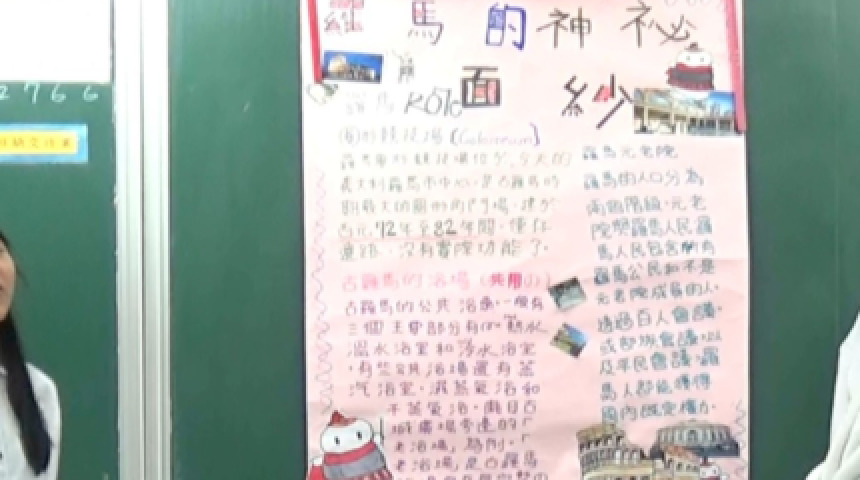 羅馬的神祕
面紗
2766
羅馬 Rome
圓形競技場(Colosseum)
羅馬圓形競技場位於今天的
義大利羅馬市中心,是古羅馬時
期最大的圓形角鬥場,建於
西元72年至82年間,僅存
遺跡,沒有實際功能了。
古羅馬的浴場(共用の)
古羅馬的公共浴場一般有
三個主要部分有:熱水
溫水浴室和冷水浴室
,有些浴場還有蒸
汽浴室,濕蒸氣浴和
干蒸氣浴,
老浴場,為例,
老浴場,是古羅馬
羅馬元老院
羅馬的人口分為
兩個階級,元老
院與羅馬人民羅
馬人民包含所有
羅馬公民而不是
元老院成員的人,
透過百人會議,
或部族會議,以
及平民會議,羅
馬人都能獲得
國內既定權力.